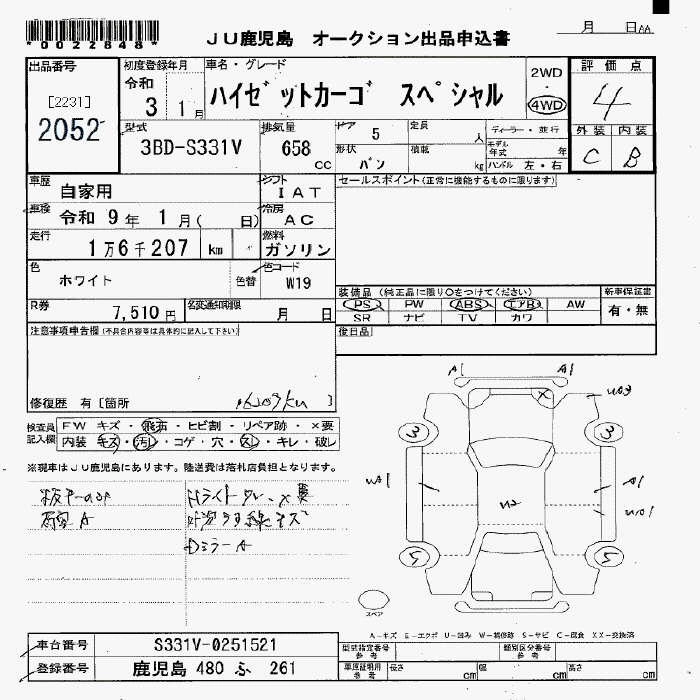 *0022848*
JU鹿児島 オークション出品申込書
月 日AA
出品番号
[2231]
2052
初度登録年月
令和
3 1月
車名・グレード
ハイゼットカーゴ スペシャル
2WD
・
4WD
評価点
4
外装 内装
C B
型式
3BD-S331V
排気量
658
cc
ドア 5
形状 バン
定員 人
積載 kg
ディーラー・並行
モデル年式 年
ハンドル 左・右
車歴 自家用
シフト IAT
セールスポイント(正常に機能するものに限ります)
車検 令和 9年 1月( 日)
冷房 AC
走行 1万6千207 km
燃料 ガソリン
色 ホワイト
色替
色コード W19
R券 7,510円
名変通知期限 月 日
装備品(純正品に限り○をつけてください)
PS PW ABS エアB AW
SR ナビ TV カワ
新車保証書
有・無
後日品
注意事項申告欄(不具合内容等は具体的に記入して下さい)
修復歴 有[箇所 ]
16207km
検査員記入欄
FW キズ・飛石・ヒビ割・リペア跡・×要
内装 キズ・汚レ・コゲ・穴・スレ・キレ・破レ
※現車はJU鹿児島にあります。陸送費は落札店負担となります。
A1 A1
3 3
A1
U2
5 5
スペア
A-キズ E-エクボ U-凹み W-補修跡 S-サビ C-腐食 XX-交換済
車台番号 S331V-0251521
登録番号 鹿児島 480 ふ 261
型式指定番号 参考
類別区分番号 参考
車庫証明用 参考
長さ cm
幅 cm
高さ cm